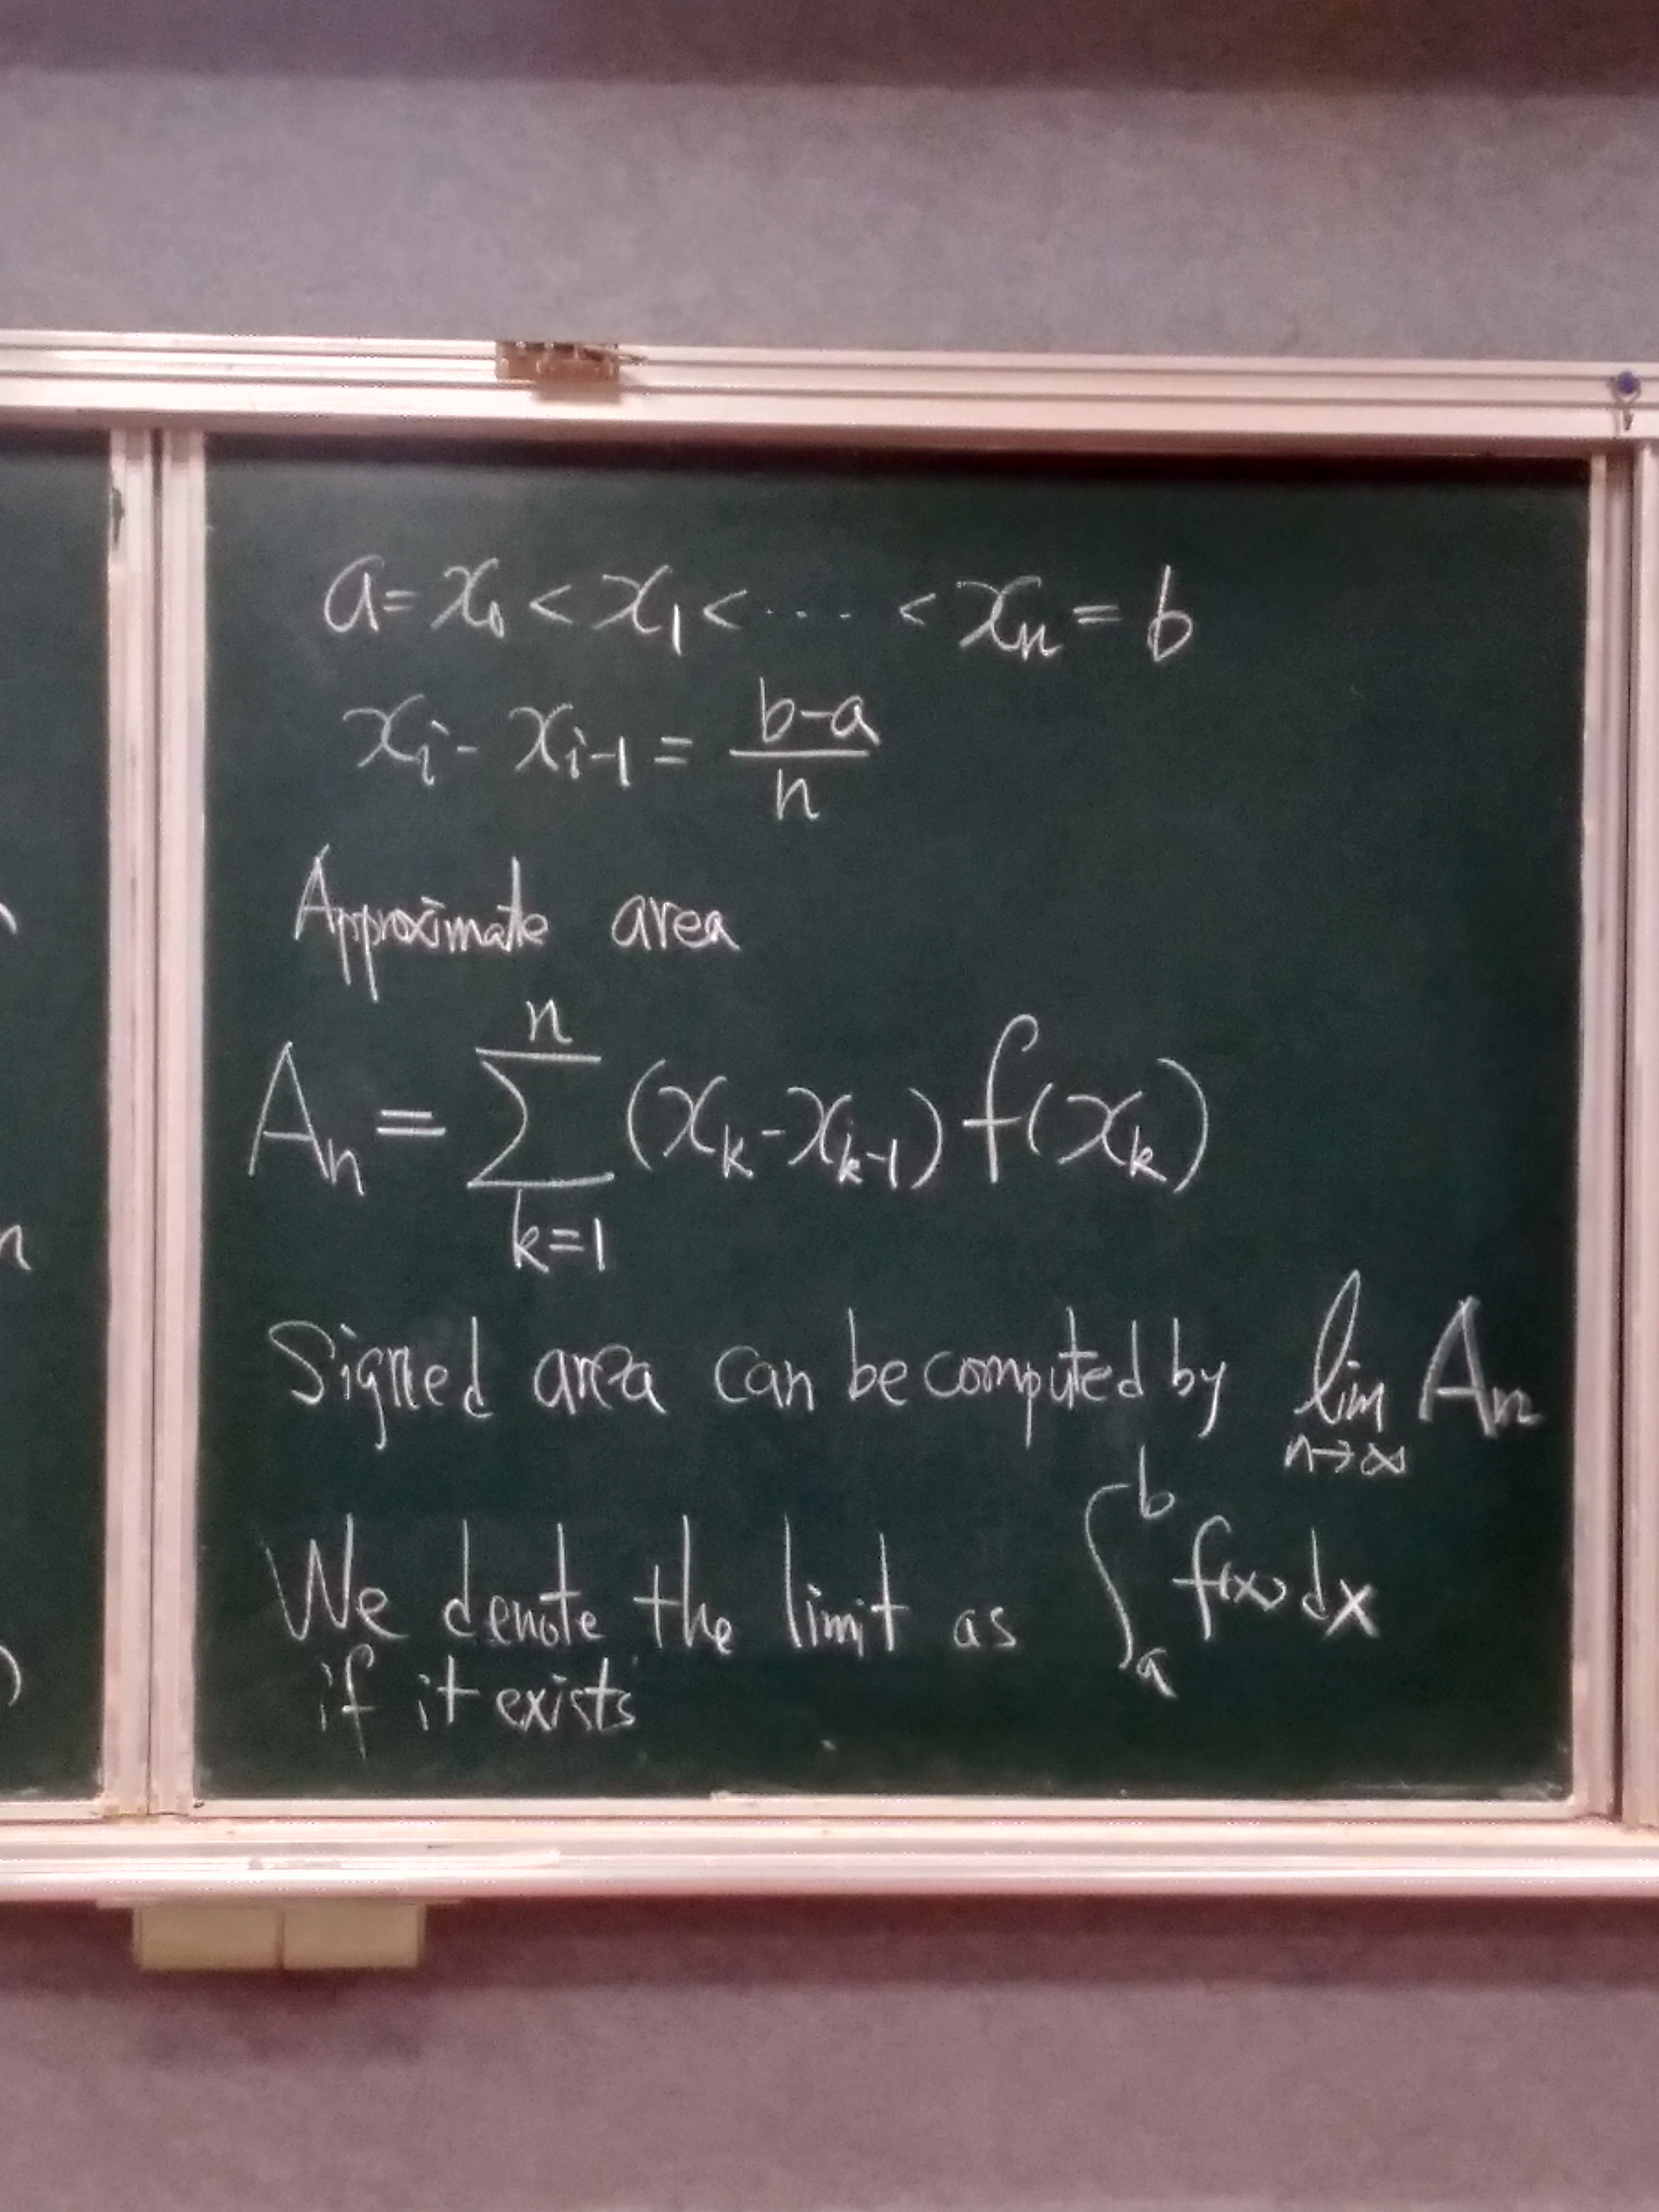 a = x₀ < x₁ < ···· < xₙ = b
xᵢ - xᵢ₋₁ = (b-a)/n
Approximate area
Aₙ = ∑ₖ₌₁ⁿ (xₖ - xₖ₋₁) f(xₖ)
Signed area can be computed by lim n→∞ Aₙ
We denote the limit as ∫ₐᵇ f(x) dx
if it exists